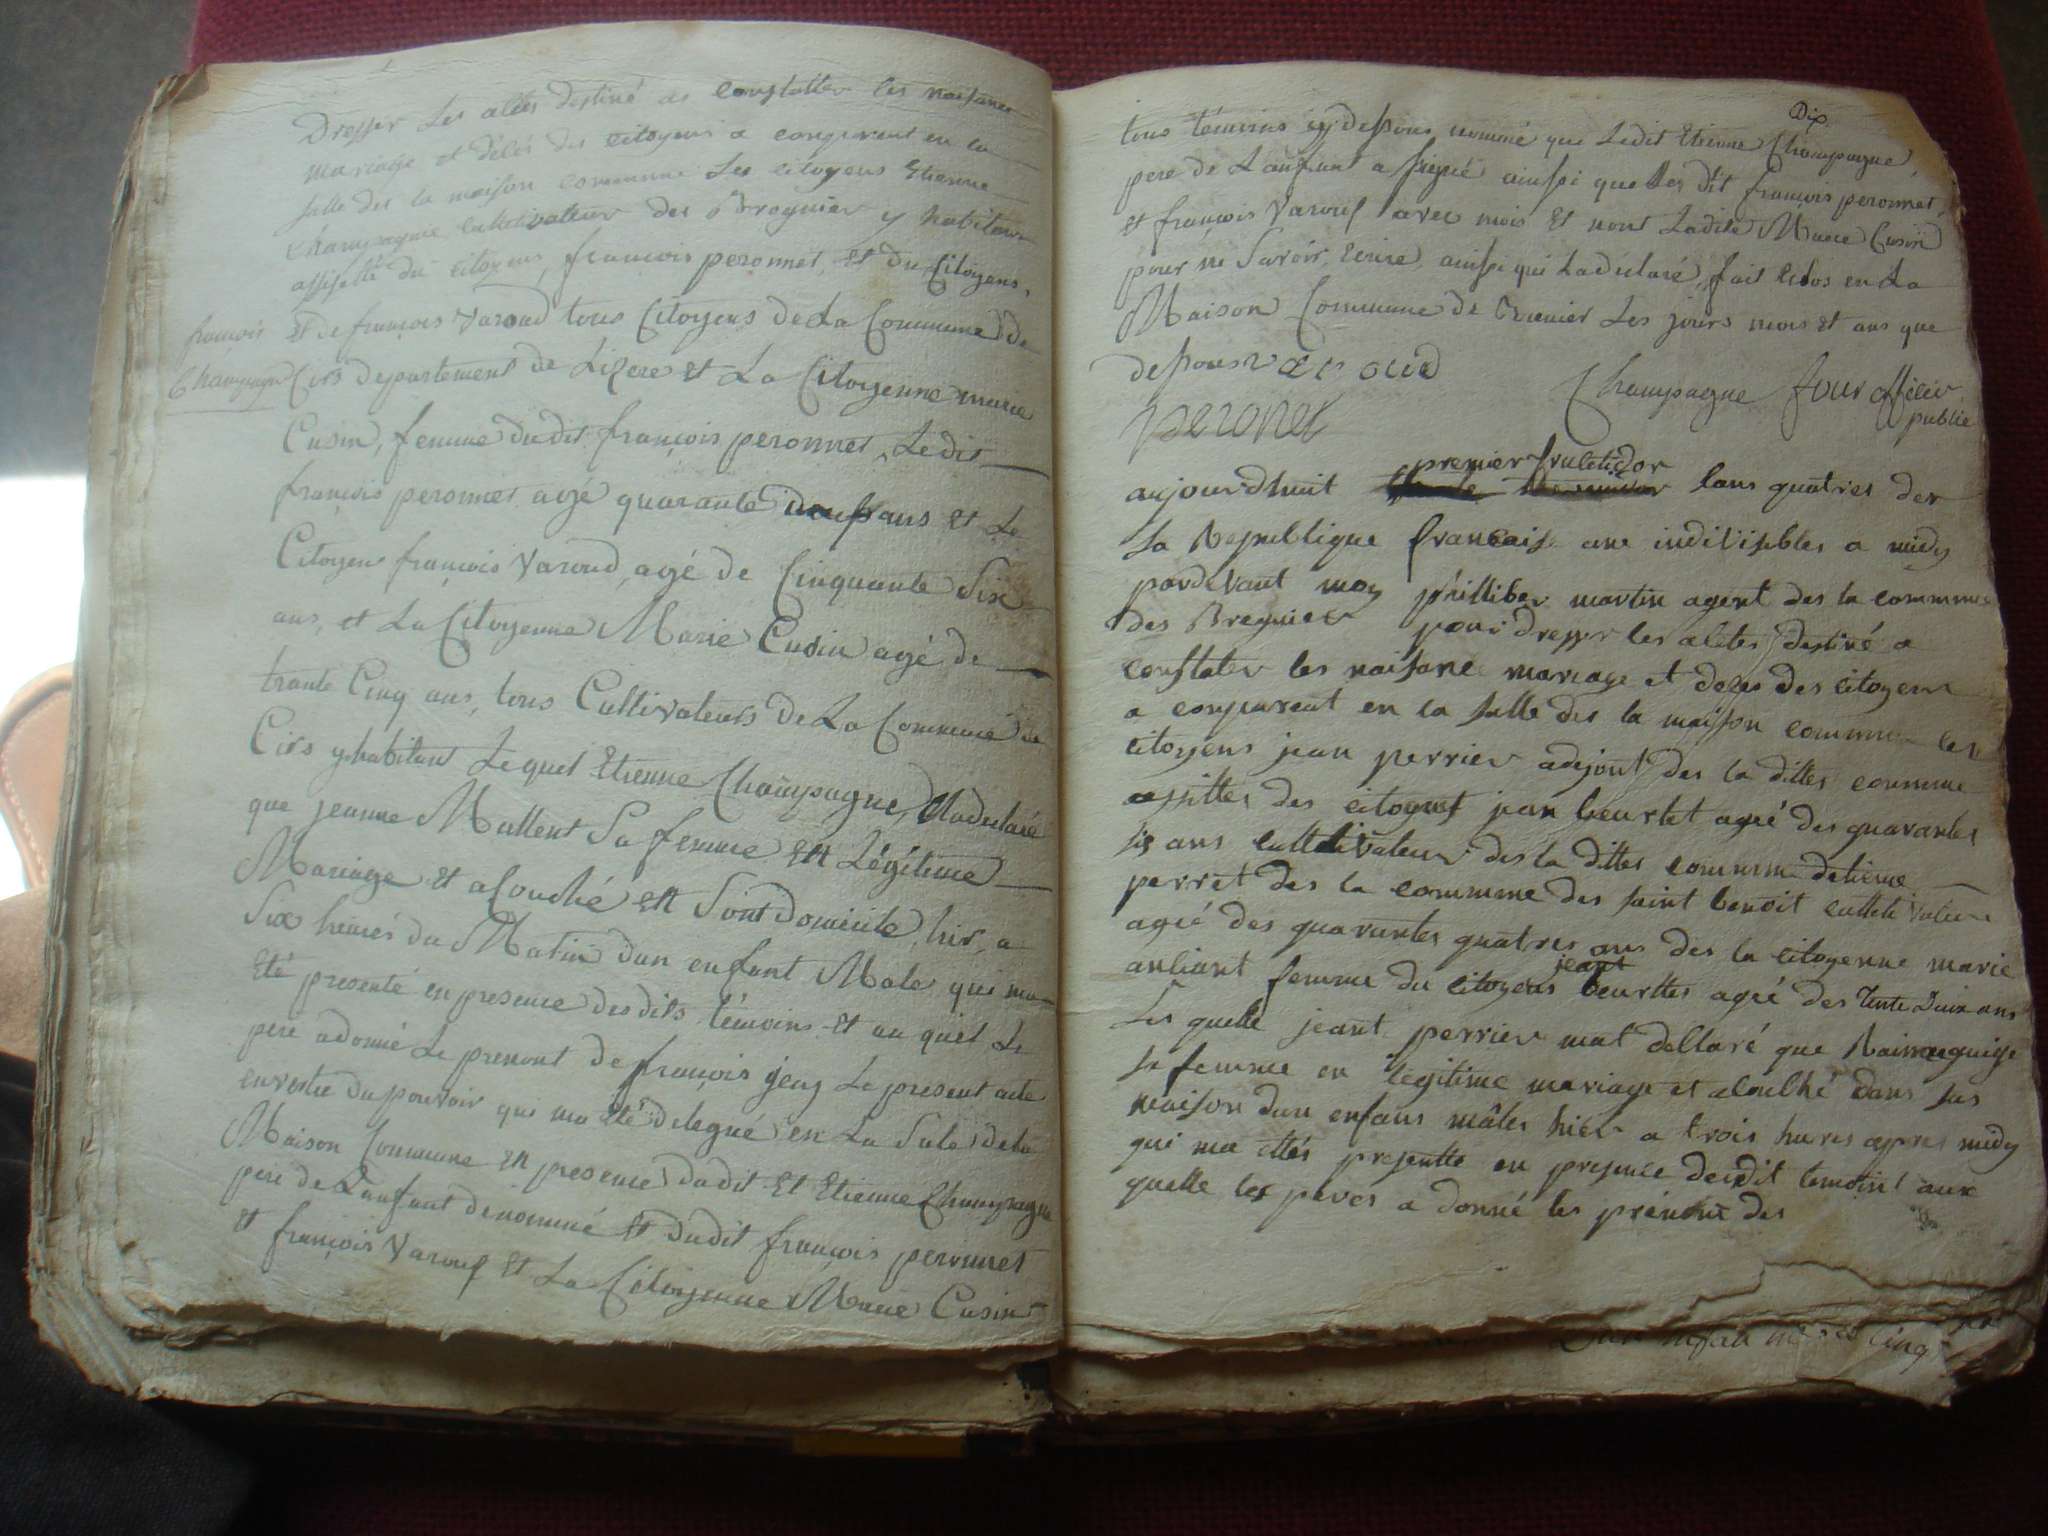 Dresser Les actes destiné as constatter les naisances
mariage et délés des citoyens a comparent en la
salle des la maison commune Les citoyens Etienne
Champagne cultivateur des Bregnier y habitans
assisatté du citoyens, françois peronnet, et du Citoyens,
et de françois Varoud tous Citoyens de La Commune de
françois
Champagne
Cirs departement de Lizere et La Citoyenne marie
Cusin, femme dudit françois peronnet, Ledit
françois peronnet agé quarante ans et Le
Citoyen françois Varoud, agé de Cinquante Six
ans, et La Citoyenne Marie Cusin agé de
trante Cinq ans, tous Cultivateurs de La Commune de
Cirs y habitant Lequel Etienne Champagne, Madeclaré
que jeanne Mallent Sa femme en Légitime
Mariage et acouché en Sont Domicile, hir, a
Six heures du Matin dun enfant Male qui ma
Eté presenté en presence desdits témoins Et au quel Le
pere adonné Le prenont de françois jeay Le present acte
envertu du pouvoir qui ma Eté delegué en La Sale de la
Maison Commune en presence dudit Et Etienne Champagne
pere de Lanfant denommé Et dudit françois peronnet
et françois Varouf Et La Citoyenne Marie Cusin
Dix.
tous témoins cy desous nommé que Ledit Etienne Champagne
pere de Lanfant a signé ainssi que Les dit françois peronnet,
et françois Varouf avec mois Et nont Ladite Marie Cusin
pour ne Savoir Ecrire ainssi qui Ladeclaré, fait Clos en La
Maison Commune de Bregnier Les jours mois et ans que
desous Varoud
peronet
Champagne four officier
public
premier fructidor
aujourdhuit lans quatres des
la Republique francais une indivisibles a midy
pardevant moy philliber martin agent des la commune
des Bregnier pour dresser les actes destiné a
constater les naisance mariage et deces des citoyens
a comparent en la salle des la maison commune les
citoyens jean perrier adejont des la dittes commune
assittes des citoyens jean beurtet agié des quarantes
sis ans culltivateur des la dittes commune detienne
perret des la commune des saint benoit cullti vateur
agié des quarantes quatres ans des la citoyenne marie
anliant femme du citoyens jeant beurttes agié des Tente Deux ans
Les quelle jeant perrier mat dellaré que
sa femme en legitime mariage et acoulhé dans sas
maison dun enfans mâles hier a trois hures apres midy
qui ma ettés presentte en presence desdit temoint aux
quelle les peres a donné les prénoms des